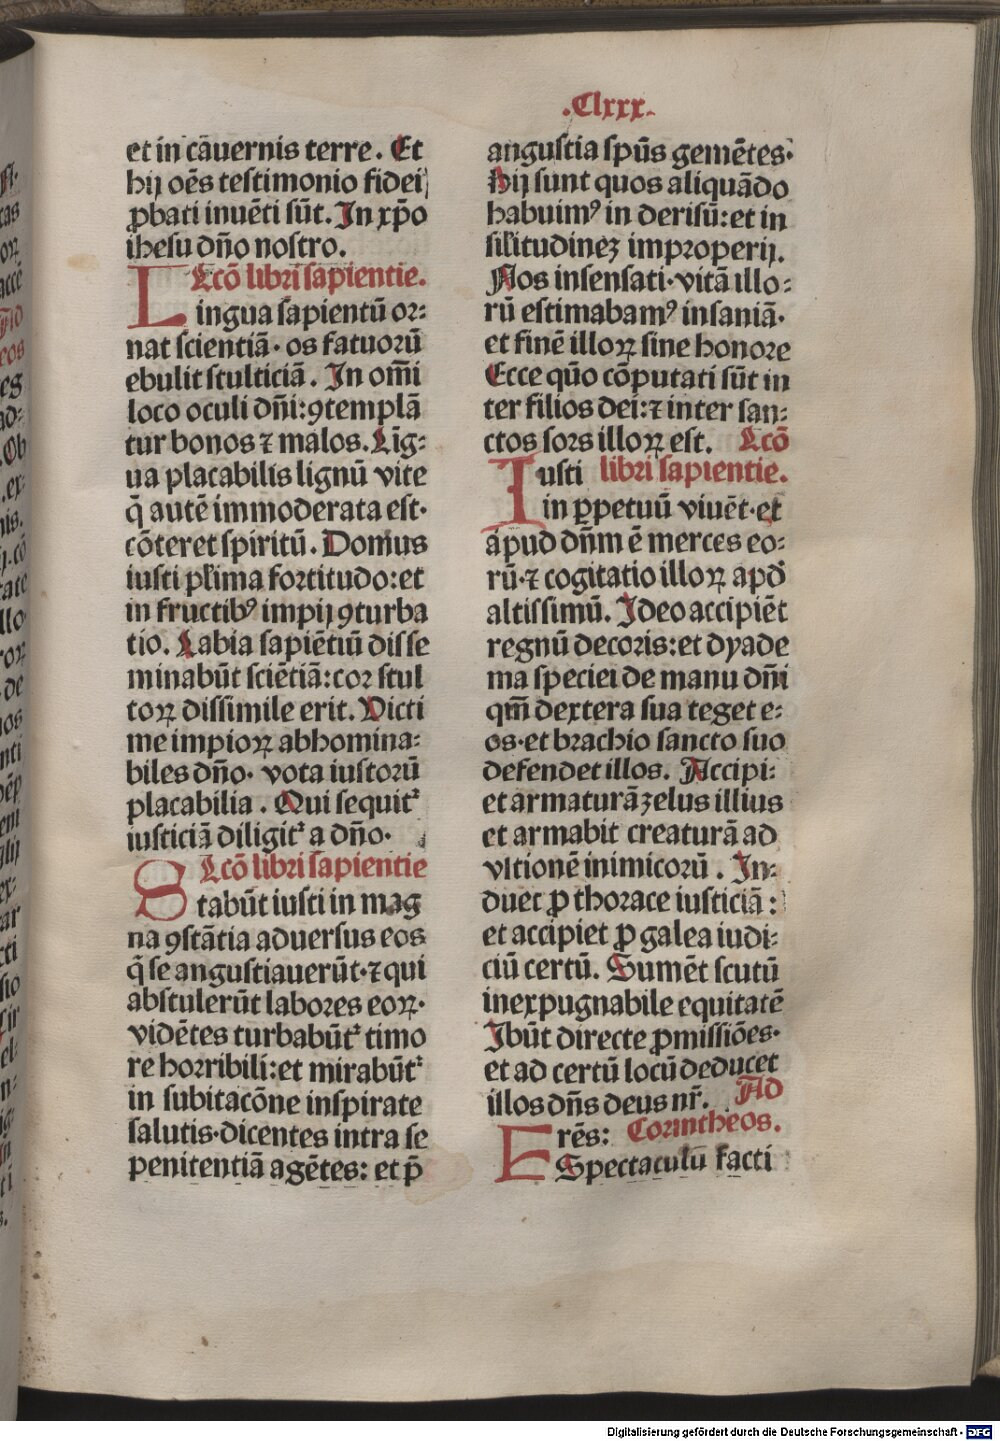 .Clxxx.
et in cãuernis terre. Et
hij oẽs testimonio fidei
ꝓbati inuẽti sũt. In xp̃o
ihesu dño nostro.
Lcõ libri sapientie.
Lingua sapientũ or⸗
nat scientiã· os fatuorũ
ebulit stulticiã. In om̃i
loco oculi dñi:ꝯtemplã
tur bonos ⁊ malos. Lĩg⸗
ua placabilis lignũ vite
q̃ autẽ immoderata est·
cõteret spiritũ. Domus
iusti pľima fortitudo:et
in fructibꝰ impij ꝯturba
tio. Labia sapiẽtiũ disse
minabũt sciẽtiã:cor stul
toꝝ dissimile erit. Victi
me impioꝝ abhomina⸗
biles dño· vota iustorũ
placabilia. Qui sequit᷑
iusticiã diligit᷑ a dño·
Lcõ libri sapientie
Stabũt iusti in mag
na ꝯstãtia aduersus eos
q̃ se angustiauerũt·⁊ qui
abstulerũt labores eoꝝ·
vidẽtes turbabũt᷑ timo
re horribili:et mirabũt᷑
in subitacõne insperate
salutis·dicentes intra se
penitentiã agẽtes: et p̃
angustia spũs gemẽtes·
Hij sunt quos aliquãdo
habuimꝰ in derisũ:et in
siľitudineʒ improperij.
Nos insensati·vitã illo⸗
rũ estimabamꝰ insaniã·
et finẽ illoꝝ sine honore
Ecce quõ cõputati sũt in
ter filios dei:⁊ inter san⸗
ctos sors illoꝝ est. Lcõ
Iusti libri sapientie.
in ꝑpetuũ viuẽt·et
apud dñm ẽ merces eo⸗
rũ·⁊ cogitatio illoꝝ apđ
altissimũ. Ideo accipiẽt
regnũ decoris:et dyade
ma speciei de manu dñi
qm̃ dextera sua teget e⸗
os·et brachio sancto suo
defendet illos. Accipi⸗
et armaturã zelus illius
et armabit creaturã ad
vltionẽ inimicorũ. In⸗
duet ꝓ thorace iusticiã:
et accipiet ꝓ galea iudi⸗
ciũ certũ. Sumẽt scutũ
inexpugnabile equitatẽ
Ibũt directe ꝓmissiões·
et ad certũ locũ deducet
illos dñs deus nr̃. Ad
Erẽs: Corintheos.
Spectaculũ facti
Digitalisierung gefördert durch die Deutsche Forschungsgemeinschaft - DFG